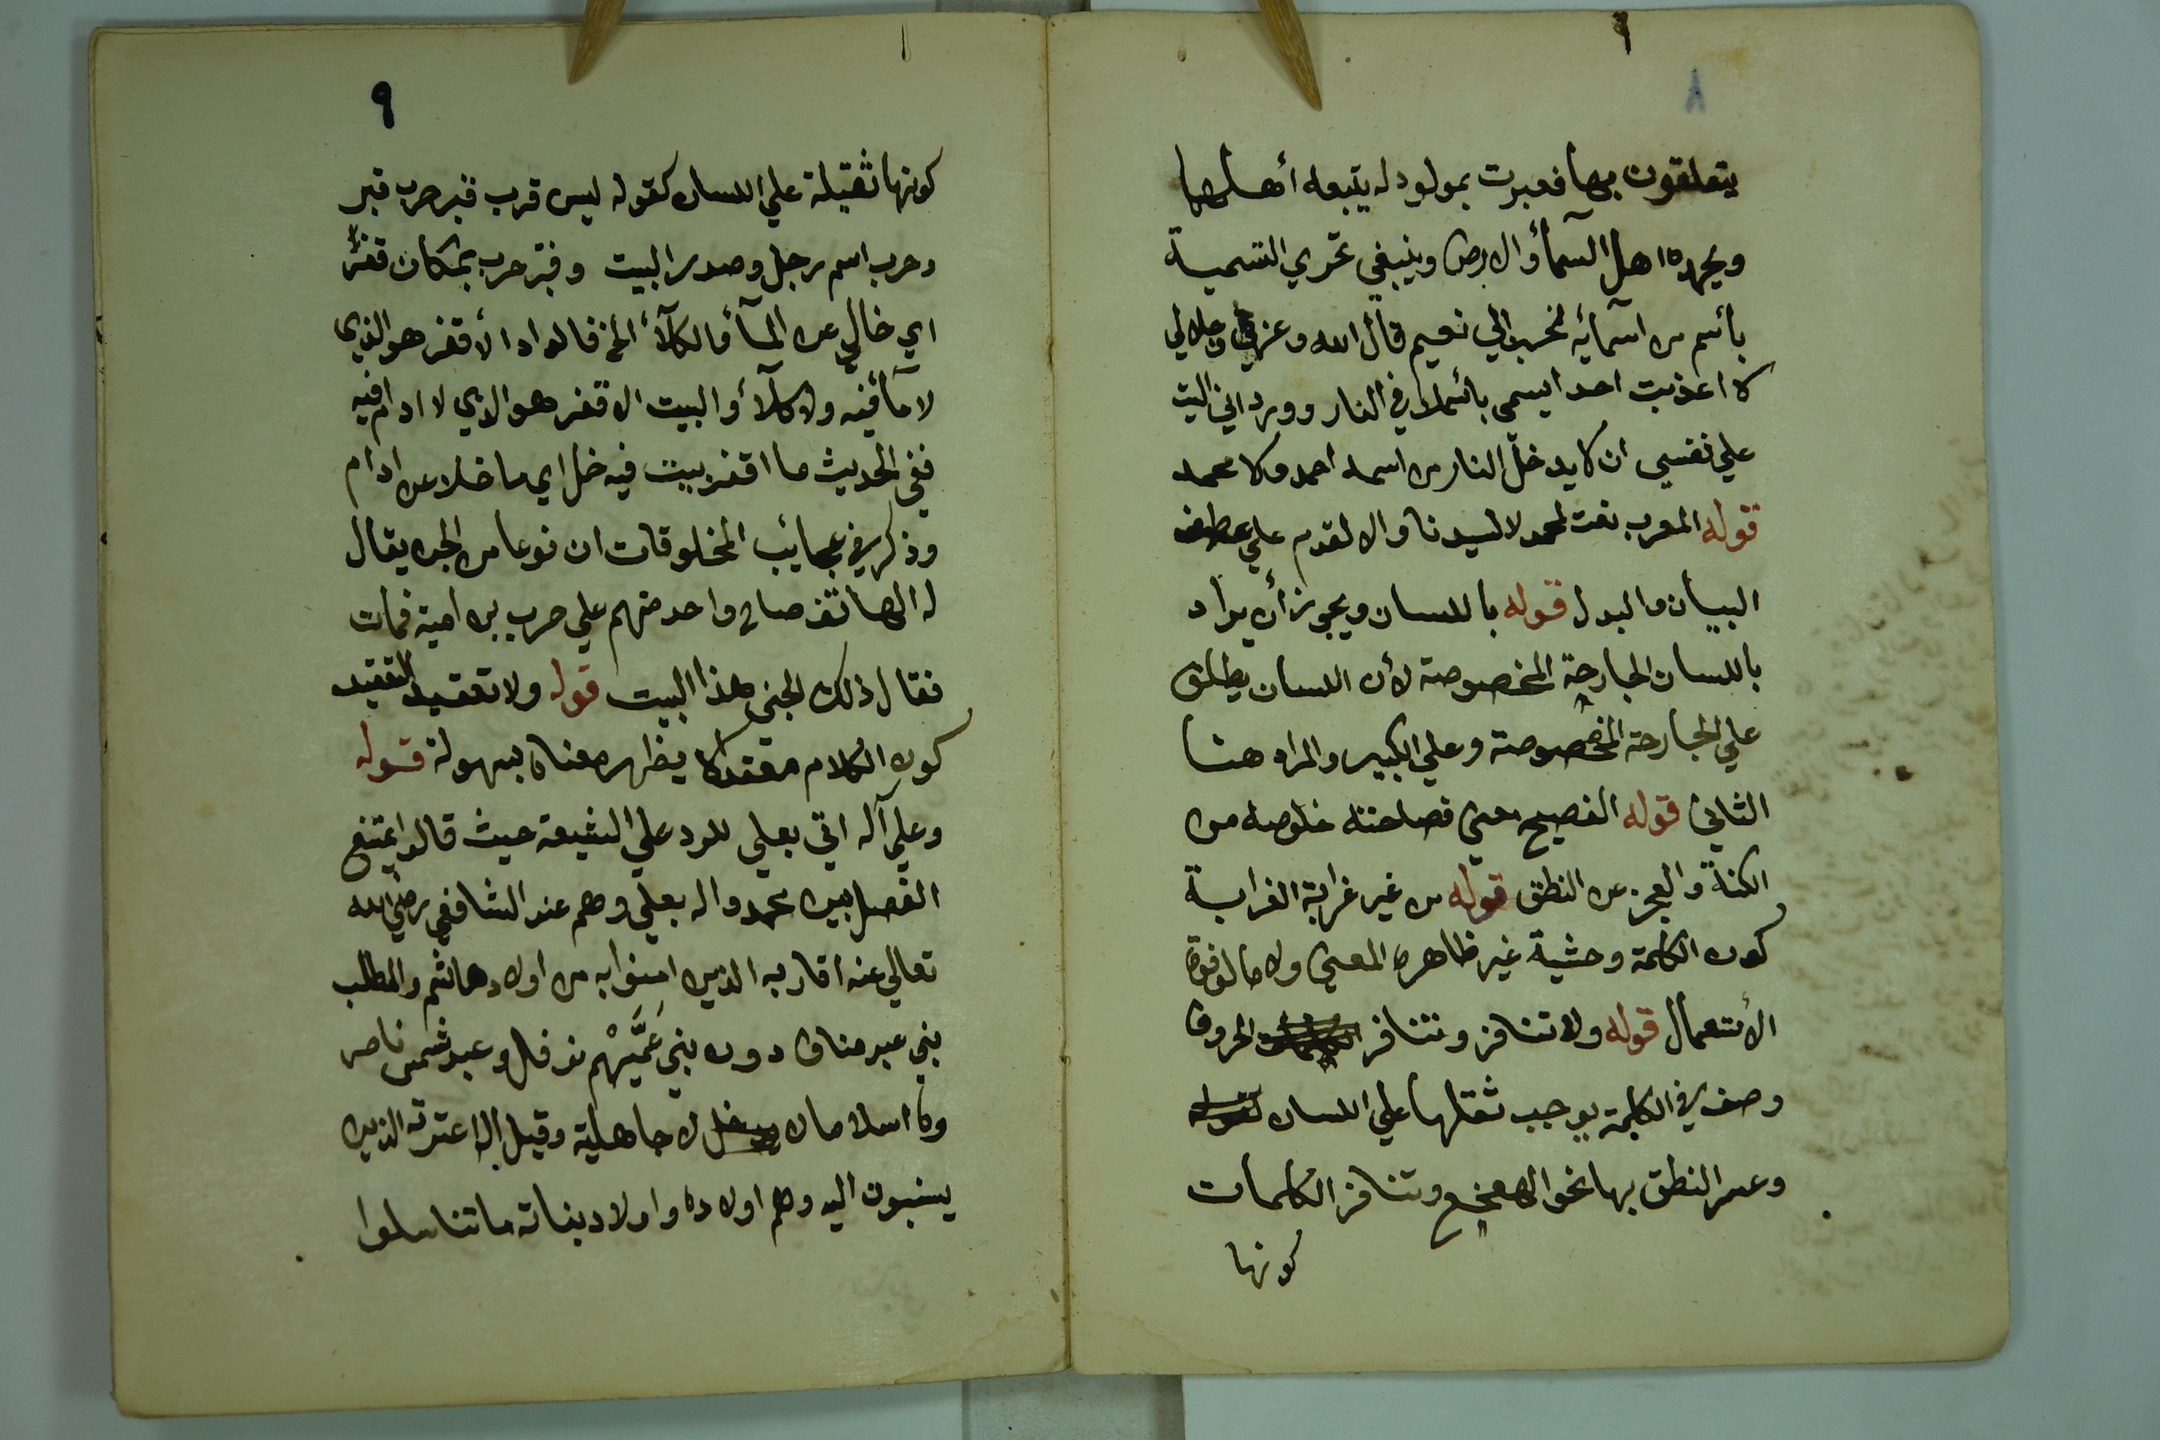 ٨
يتعلقون بها فعبرت بمولود له يتبعه أهلها
ويحمده اهل السمأ والارض وينبغي تحري التسمية
بأسم من اسمائه لخبر ابي نعيم قال الله وعزتي وجلالي
لا اعذبت احدا يسمي بأسمك في النار وورد اني اليت
علي نفسي ان لا يدخل النار من اسمه احمد ولا محمد
قوله المعرب نعت لمحمد لا لسيدنا والا لقدم علي عطف
البيان والبدل قوله باللسان ويجوز أن يراد
باللسان الجارحة المخصوصة لأن اللسان يطلق
علي الجارحة المخصوصة وعلي الكبير والمراد هنا
الثاني قوله الفصيح معني فصاحته خلوصه من
الكنة والعجز عن النطق قوله من غير غرابة الغرابة
كون الكلمة وحشية غير ظاهرة المعني ولا مالوفة
الأستعمال قوله ولا تنافر وتنافر الحروف
وصف في الكلمة يوجب ثقلها علي اللسان
وعسر النطق بها نحو الهعخع وتنافر الكلمات
كونها
٩
كونها ثقيلة علي اللسان كقوله ليس قرب قبر حرب قبر
وحرب اسم رجل وصدر البيت وقبر حرب بمكان قفر
اي خال عن المأ والكلأ الخ قالوا الأقفر هو الذي
لا مأ فيه ولا كلأ والبيت الاقفر هو الذي لا ادام فيه
ففي الحديث ما اقفر بيت فيه خل اي ما خلا عن ادام
وذكر في عجائب المخلوقات ان نوعا من الجن يقال
له الهاتف صاح واحد منهم علي حرب بن امية فمات
فقال ذلك الجني هذا البيت قوله ولا تعقيد التعقيد
كون الكلام معقدا لا يظهر معناه بسهولة قوله
وعلي آله اتي بعلي للرد علي الشيعة حيث قالوا يمتنع
الفصل بين محمد واله بعلي وهم عند الشافعي رضي الله
تعالي عنه اقاربه الذين امنوا به من اولاد هاشم والمطلب
بني عبد مناف دون بني عَمَّيْهِم نوفل وعبد شمس ناصر
ولا اسلاما لا جاهلية وقيل اله عترته الذين
ينسبون اليه وهم اولاده واولاد بناته ما تناسلوا